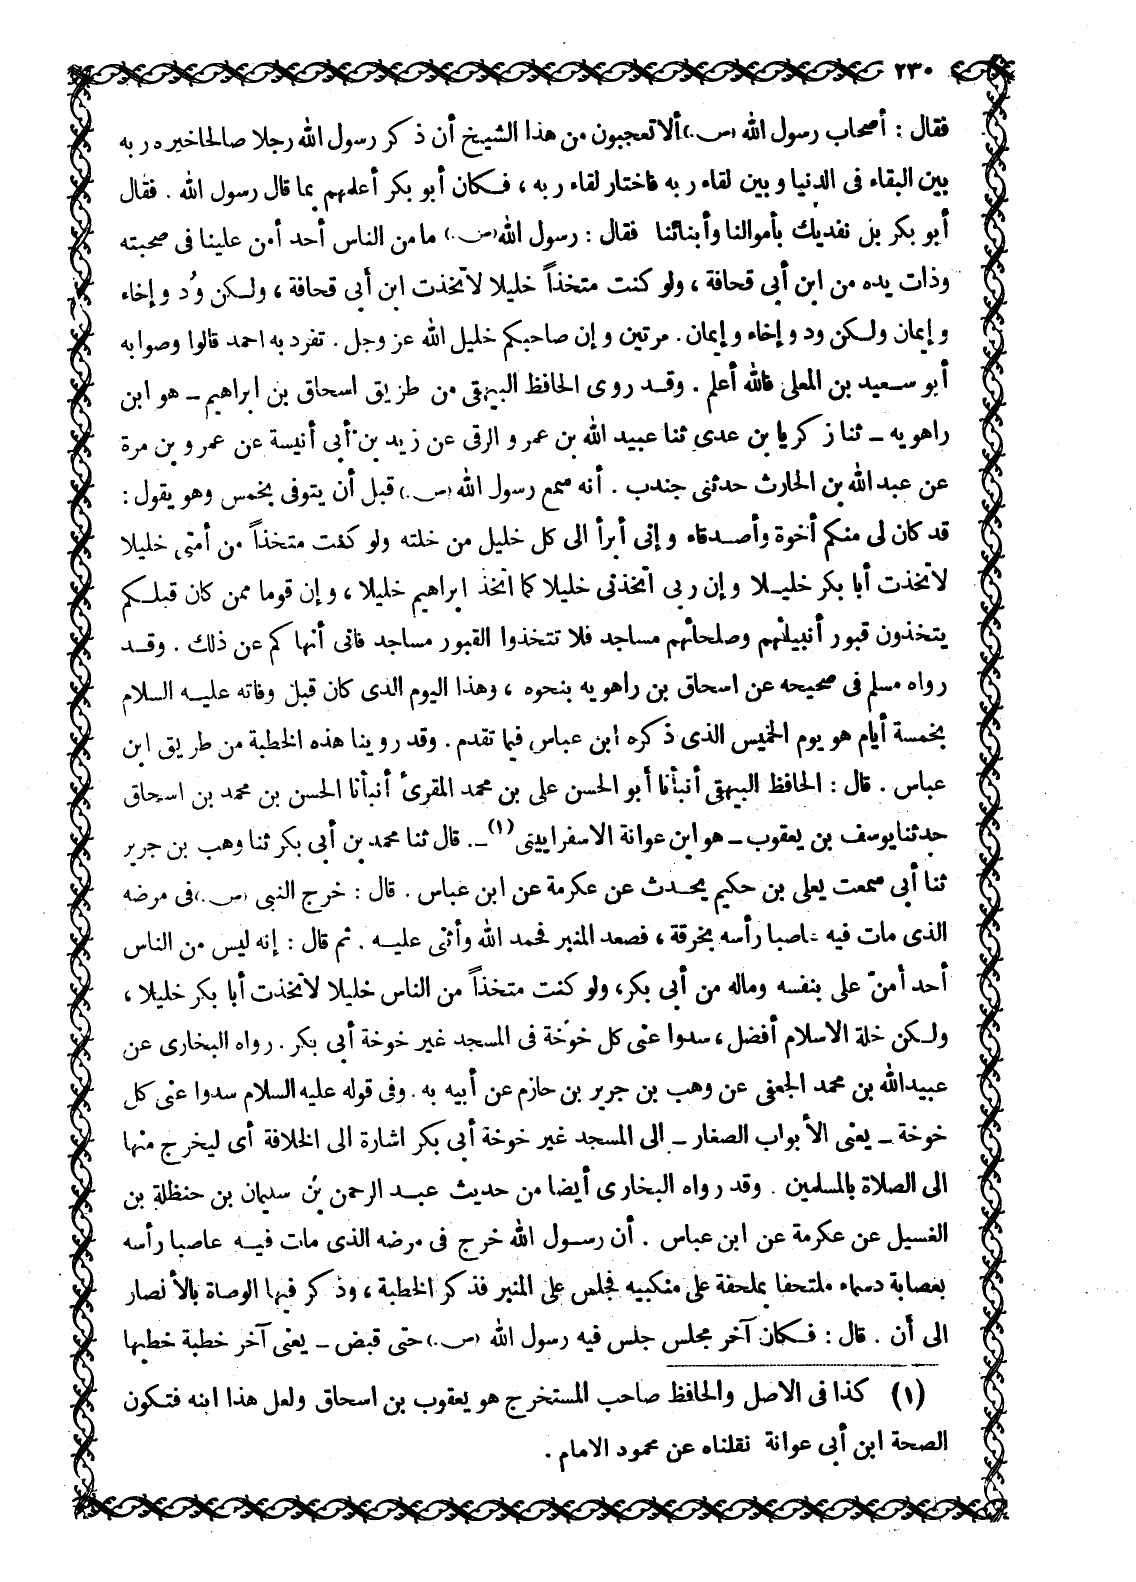 ٢٣٠
فقال : أصحاب رسول الله (ص.) ألا تعجبون من هذا الشيخ أن ذكر رسول الله رجلا صالحا خيره ربه
بين البقاء فى الدنيا وبين لقاء ربه فاختار لقاء ربه ، فكان أبو بكر أعلمهم بما قال رسول الله . فقال
أبو بكر بل نفديك بأموالنا وأبنائنا فقال : رسول الله (ص.) ما من الناس أحد أمن علينا فى صحبته
وذات يده من ابن أبى قحافة ، ولو كنت متخذاً خليلا لاتخذت ابن أبى قحافة ، ولكن وُد وإخاء
وإيمان ولكن ود وإخاء وإيمان. مرتين وإن صاحبكم خليل الله عز وجل . تفرد به احمد قالوا وصوابه
أبو سعيد بن المعلى فالله أعلم . وقد روى الحافظ البيهقى من طريق اسحاق بن ابراهيم ــ هو ابن
راهويه ــ ثنا زكريا بن عدى ثنا عبيد الله بن عمرو الرقى عن زيد بن أبى أنيسة عن عمرو بن مرة
عن عبد الله بن الحارث حدثنى جندب . أنه سمع رسول الله (ص.) قبل أن يتوفى بخمس وهو يقول :
قد كان لى منكم أخوة وأصدقاء وإنى أبرأ الى كل خليل من خلته ولو كنت متخذاً من أمتى خليلا
لاتخذت أبا بكر خليلا وإن ربى اتخذنى خليلا كما اتخذ ابراهيم خليلا ، وإن قوما ممن كان قبلكم
يتخذون قبور أنبيائهم وصلحائهم مساجد فلا تتخذوا القبور مساجد فانى أنها كم عن ذلك . وقد
رواه مسلم فى صحيحه عن اسحاق بن راهويه بنحوه ، وهذا اليوم الذى كان قبل وفاته عليه السلام
بخمسة أيام هو يوم الخميس الذى ذكره ابن عباس فيما تقدم . وقد روينا هذه الخطبة من طريق ابن
عباس . قال : الحافظ البيهقى أنبأنا أبو الحسن على بن محمد المقرئ أنبأنا الحسن بن محمد بن اسحاق
حدثنا يوسف بن يعقوب ــ هو ابن عوانة الاسفراييني (١) ــ . قال ثنا محمد بن أبى بكر ثنا وهب بن جرير
ثنا أبى سمعت يعلى بن حكيم يحدث عن عكرمة عن ابن عباس . قال : خرج النبى (ص.) فى مرضه
الذى مات فيه عاصبا رأسه بخرقة ، فصعد المنبر فحمد الله وأثنى عليه . ثم قال : إنه ليس من الناس
أحد أمنّ على بنفسه وماله من أبى بكر، ولو كنت متخذاً من الناس خليلا لاتخذت أبا بكر خليلا ،
ولكن خلة الاسلام أفضل ، سدوا عنى كل خوخة فى المسجد غير خوخة أبى بكر . رواه البخارى عن
عبيدالله بن محمد الجعفى عن وهب بن جرير بن حازم عن أبيه به . وفى قوله عليه السلام سدوا عنى كل
خوخة ــ يعنى الأبواب الصغار ــ الى المسجد غير خوخة أبى بكر اشارة الى الخلافة أى ليخرج منها
الى الصلاة بالمسلمين . وقد رواه البخارى أيضا من حديث عبد الرحمن بن سليمان بن حنظلة بن
الغسيل عن عكرمة عن ابن عباس . أن رسول الله خرج فى مرضه الذى مات فيه عاصبا رأسه
بعصابة دسماء ملتحفا بملحفة على منكبيه فجلس على المنبر فذكر الخطبة ، وذكر فيها الوصاة بالأنصار
الى أن . قال : فكان آخر مجلس جلس فيه رسول الله (ص.) حتى قبض ــ يعنى آخر خطبة خطبها
(١) كذا فى الاصل والحافظ صاحب المستخرج هو يعقوب بن اسحاق ولعل هذا ابنه فتكون
الصحة ابن أبى عوانة نقلناه عن محمود الامام .